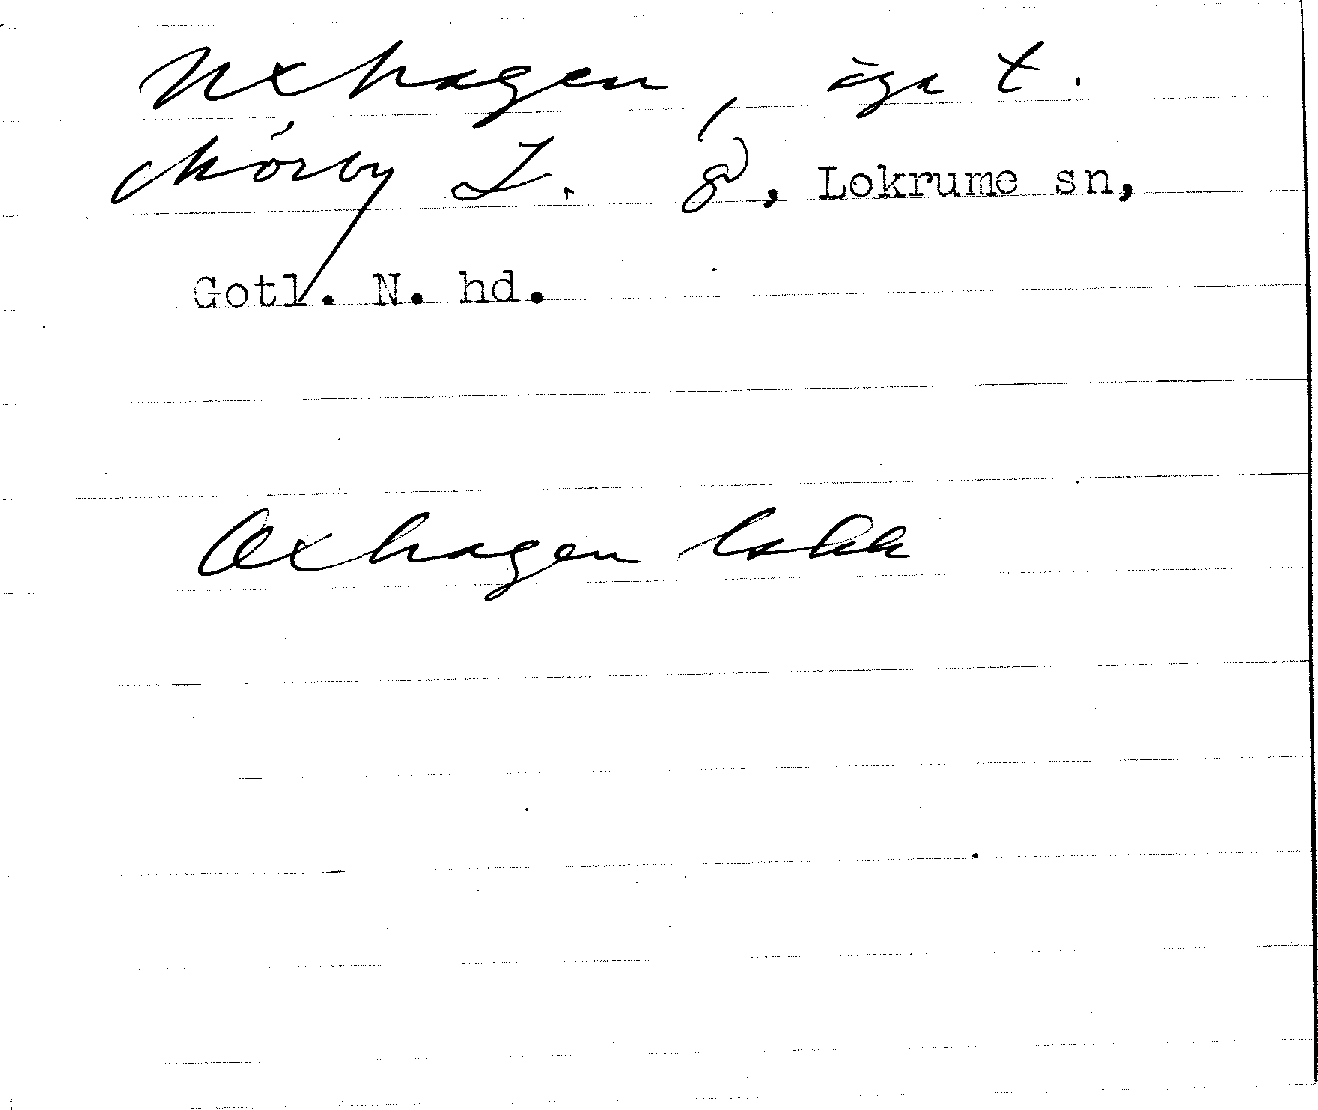 Uxhagen, äga t.
Mörby g, Lokrume sn,
Gotl. N. hd.
Oxhagen